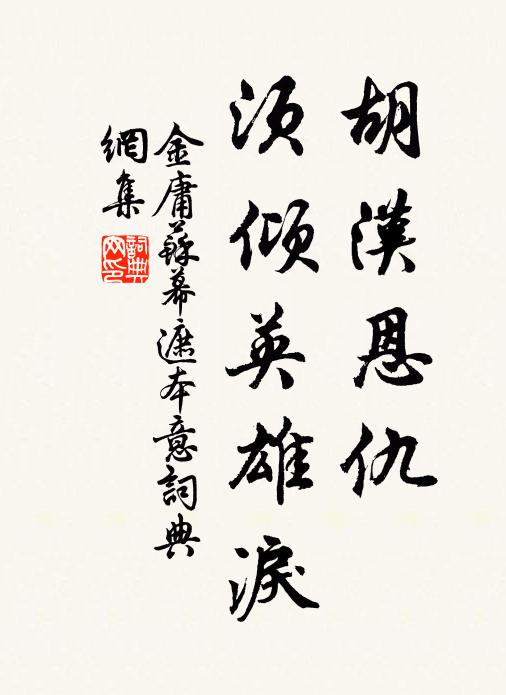 胡漢恩仇
須傾英雄淚
金庸蘇幕遮本意詞典
網集
詞典网印